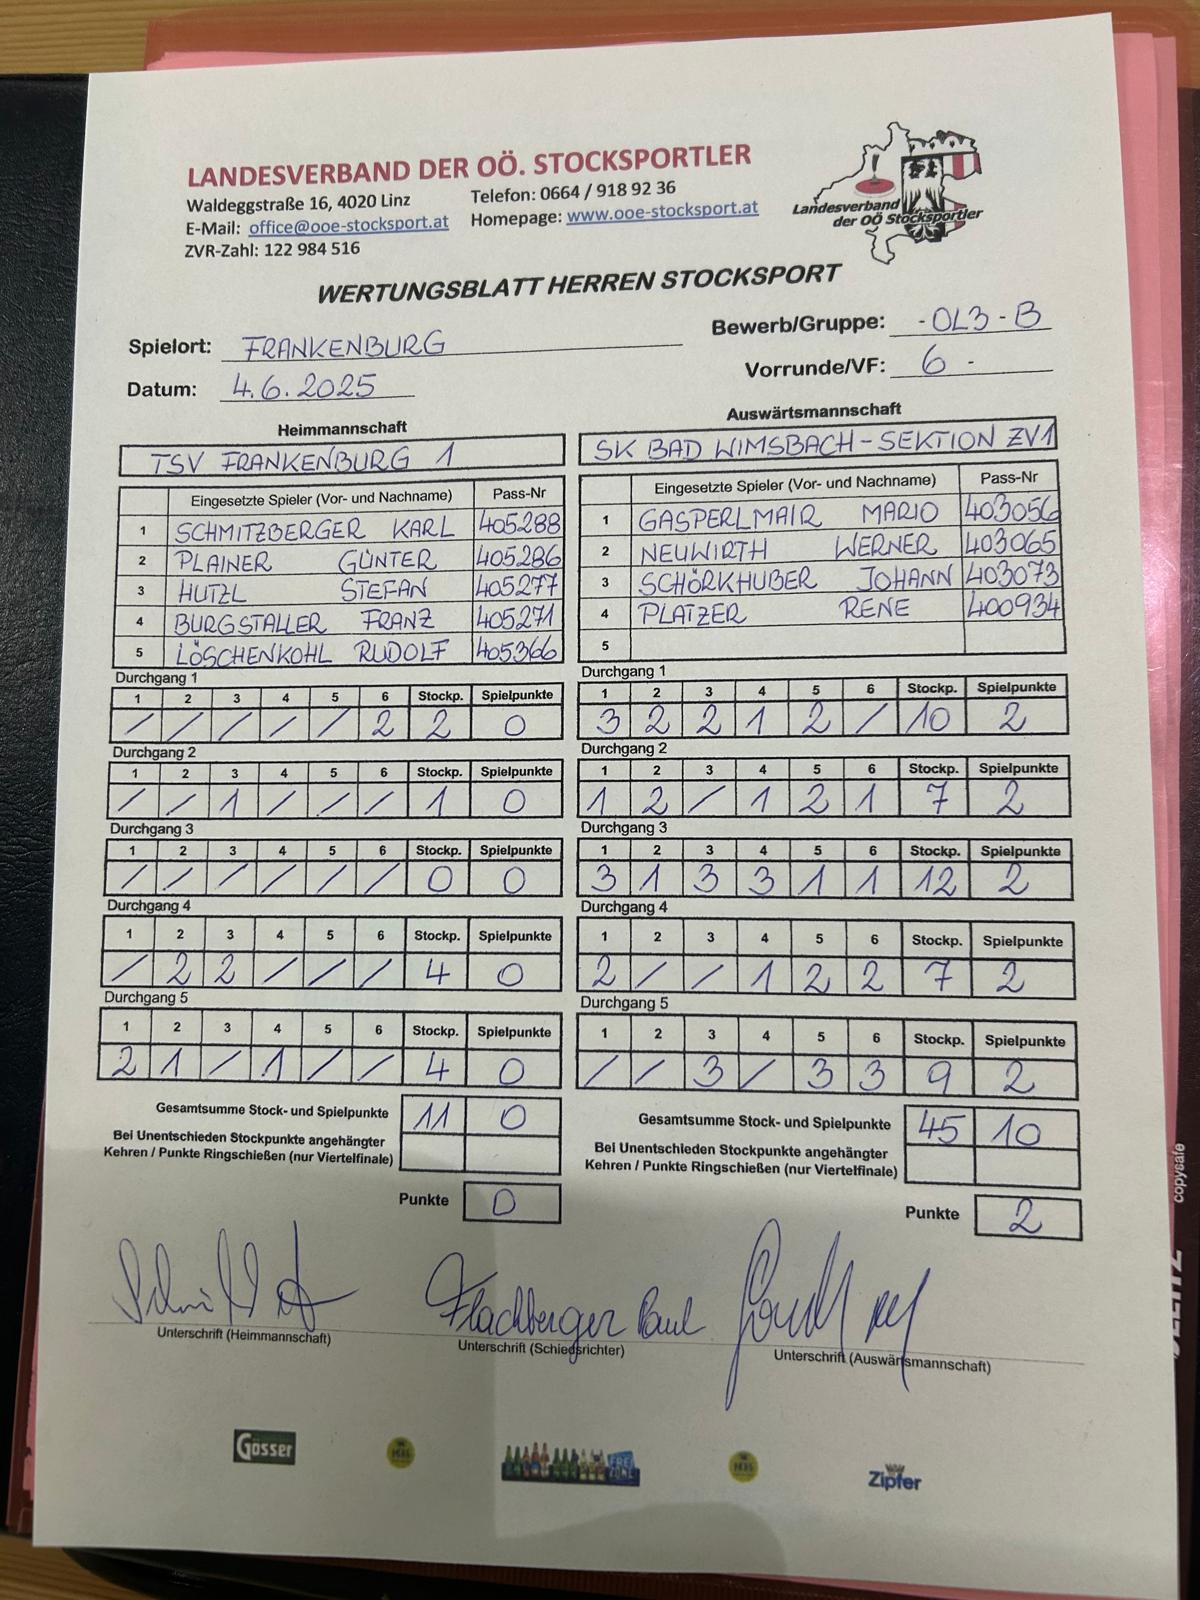 LANDESVERBAND DER OÖ. STOCKSPORTLER
Waldeggstraße 16, 4020 Linz Telefon: 0664 / 918 92 36
E-Mail: office@ooe-stocksport.at Homepage: www.ooe-stocksport.at
ZVR-Zahl: 122 984 516
Landesverband
der OÖ Stocksportler
WERTUNGSBLATT HERREN STOCKSPORT
Spielort: FRANKENBURG Bewerb/Gruppe: -OL3-B
Datum: 4.6.2025 Vorrunde/VF: 6 -
Heimmannschaft Auswärtsmannschaft
TSV FRANKENBURG 1 SK BAD WIMSBACH-SEKTION ZV1
Eingesetzte Spieler (Vor- und Nachname) Pass-Nr Eingesetzte Spieler (Vor- und Nachname) Pass-Nr
1 SCHMITZBERGER KARL 405288 1 GASPERLMAIR MARIO 403056
2 PLAINER GÜNTER 405286 2 NEUWIRTH WERNER 403065
3 HUTZL STEFAN 405277 3 SCHÖRKHUBER JOHANN 403073
4 BURGSTALLER FRANZ 405271 4 PLATZER RENE 400934
5 LÖSCHENKOHL RUDOLF 405366 5
Durchgang 1 Durchgang 1
1 2 3 4 5 6 Stockp. Spielpunkte 1 2 3 4 5 6 Stockp. Spielpunkte
/ / / / / 2 2 0 3 2 2 1 2 / 10 2
Durchgang 2 Durchgang 2
1 2 3 4 5 6 Stockp. Spielpunkte 1 2 3 4 5 6 Stockp. Spielpunkte
/ / 1 / / / 1 0 1 2 / 1 2 1 7 2
Durchgang 3 Durchgang 3
1 2 3 4 5 6 Stockp. Spielpunkte 1 2 3 4 5 6 Stockp. Spielpunkte
/ / / / / / 0 0 3 1 3 3 1 1 12 2
Durchgang 4 Durchgang 4
1 2 3 4 5 6 Stockp. Spielpunkte 1 2 3 4 5 6 Stockp. Spielpunkte
/ 2 2 / / / 4 0 2 / / 1 2 2 7 2
Durchgang 5 Durchgang 5
1 2 3 4 5 6 Stockp. Spielpunkte 1 2 3 4 5 6 Stockp. Spielpunkte
2 1 / 1 / / 4 0 / / 3 / 3 3 9 2
Gesamtsumme Stock- und Spielpunkte 11 0 Gesamtsumme Stock- und Spielpunkte 45 10
Bei Unentschieden Stockpunkte angehängter Bei Unentschieden Stockpunkte angehängter
Kehren / Punkte Ringschießen (nur Viertelfinale) Kehren / Punkte Ringschießen (nur Viertelfinale)
Punkte 0 Punkte 2
Flachberger Paul
Unterschrift (Heimmannschaft) Unterschrift (Schiedsrichter) Unterschrift (Auswärtsmannschaft)
Gösser Zipfer
copysafe